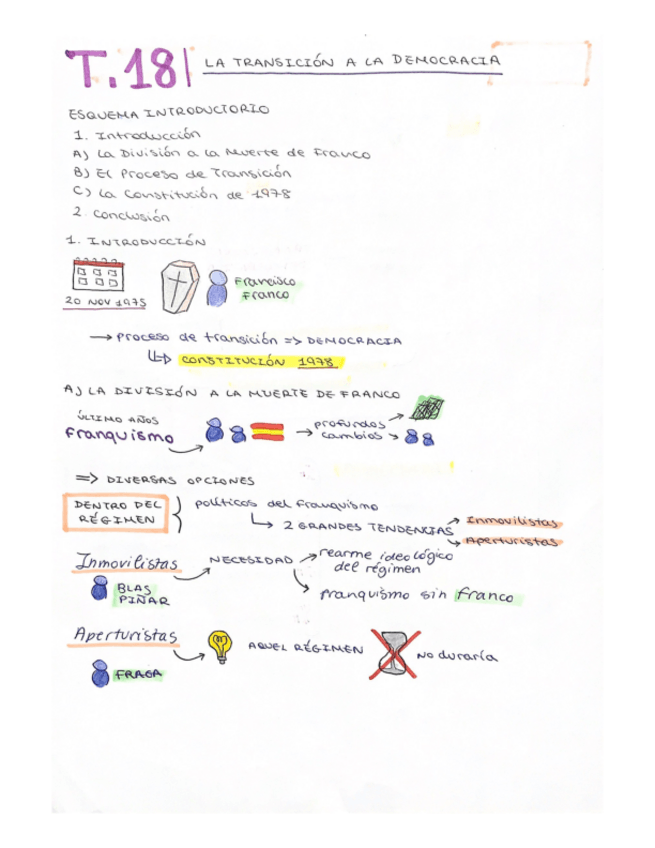 T.18| LA TRANSICIÓN A LA DEMOCRACIA
ESQUEMA INTRODUCTORIO
1. Introducción
A) La División a la Muerte de Franco
B) El Proceso de Transición
C) La Constitución de 1978
2. Conclusión
1. INTRODUCCIÓN
20 NOV 1975
Francisco
Franco
→ Proceso de transición => DEMOCRACIA
↳ CONSTITUCIÓN 1978
A) LA DIVISIÓN A LA MUERTE DE FRANCO
ÚLTIMO AÑOS
Franquismo
→ profundos
cambios
=> DIVERSAS OPCIONES
DENTRO DEL
RÉGIMEN
políticos del Franquismo
↳ 2 GRANDES TENDENCIAS
Inmovilistas
Aperturistas
Inmovilistas
BLAS
PIÑAR
NECESIDAD
rearme ideológico
del régimen
Franquismo sin Franco
Aperturistas
FRAGA
AQUEL RÉGIMEN
No duraría